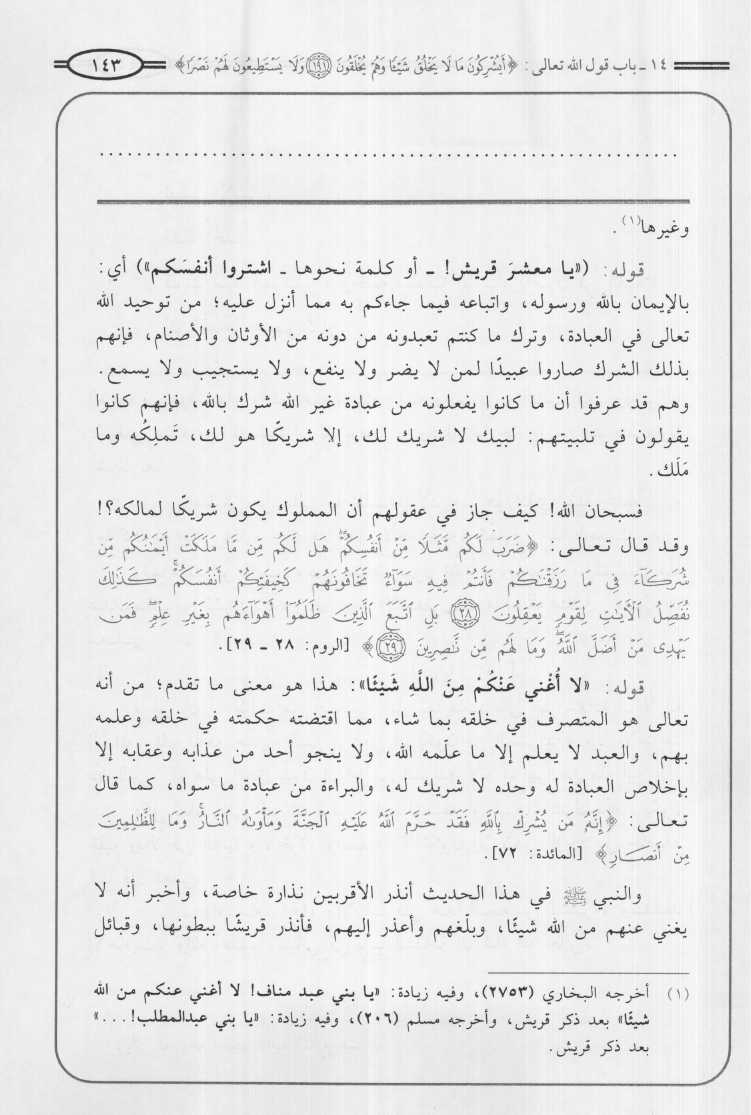 ١٤ ـ باب قول الله تعالى: ﴿أَيُشْرِكُونَ مَا لَا يَخْلُقُ شَيْـًٔا وَهُمْ يُخْلَقُونَ ١٩١ وَلَا يَسْتَطِيعُونَ لَهُمْ نَصْرًا﴾
١٤٣
................................................................
وغيرها(١).
قوله: («يا معشرَ قريش! ـ أو كلمة نحوها ـ اشتروا أنفسَكم») أي:
بالإيمان بالله ورسوله، واتباعه فيما جاءكم به مما أنزل عليه؛ من توحيد الله
تعالى في العبادة، وترك ما كنتم تعبدونه من دونه من الأوثان والأصنام، فإنهم
بذلك الشرك صاروا عبيدًا لمن لا يضر ولا ينفع، ولا يستجيب ولا يسمع.
وهم قد عرفوا أن ما كانوا يفعلونه من عبادة غير الله شرك بالله، فإنهم كانوا
يقولون في تلبيتهم: لبيك لا شريك لك، إلا شريكًا هو لك، تَملِكُه وما
مَلَك.
فسبحان الله! كيف جاز في عقولهم أن المملوك يكون شريكًا لمالكه؟!
وقد قال تعالى: ﴿ضَرَبَ لَكُم مَّثَلًا مِّنْ أَنفُسِكُمْ ۖ هَل لَّكُم مِّن مَّا مَلَكَتْ أَيْمَٰنُكُم مِّن
شُرَكَآءَ فِى مَا رَزَقْنَٰكُمْ فَأَنتُمْ فِيهِ سَوَآءٌ تَخَافُونَهُمْ كَخِيفَتِكُمْ أَنفُسَكُمْ ۚ كَذَٰلِكَ
نُفَصِّلُ ٱلْـَٔايَٰتِ لِقَوْمٍ يَعْقِلُونَ ٢٨ بَلِ ٱتَّبَعَ ٱلَّذِينَ ظَلَمُوٓا۟ أَهْوَآءَهُم بِغَيْرِ عِلْمٍ ۖ فَمَن
يَهْدِى مَنْ أَضَلَّ ٱللَّهُ ۖ وَمَا لَهُم مِّن نَّٰصِرِينَ ٢٩﴾ [الروم: ٢٨ ـ ٢٩].
قوله: «لا أُغْني عَنْكُمْ مِنَ اللَّهِ شَيْئًا»: هذا هو معنى ما تقدم؛ من أنه
تعالى هو المتصرف في خلقه بما شاء، مما اقتضته حكمته في خلقه وعلمه
بهم، والعبد لا يعلم إلا ما علّمه الله، ولا ينجو أحد من عذابه وعقابه إلا
بإخلاص العبادة له وحده لا شريك له، والبراءة من عبادة ما سواه، كما قال
تعالى: ﴿إِنَّهُۥ مَن يُشْرِكْ بِٱللَّهِ فَقَدْ حَرَّمَ ٱللَّهُ عَلَيْهِ ٱلْجَنَّةَ وَمَأْوَىٰهُ ٱلنَّارُ ۖ وَمَا لِلظَّٰلِمِينَ
مِنْ أَنصَارٍ﴾ [المائدة: ٧٢].
والنبي ﷺ في هذا الحديث أنذر الأقربين نذارة خاصة، وأخبر أنه لا
يغني عنهم من الله شيئًا، وبلّغهم وأعذر إليهم، فأنذر قريشًا ببطونها، وقبائل
(١) أخرجه البخاري (٢٧٥٣)، وفيه زيادة: «يا بني عبد مناف! لا أغني عنكم من الله
شيئًا» بعد ذكر قريش، وأخرجه مسلم (٢٠٦)، وفيه زيادة: «يا بني عبدالمطلب!...»
بعد ذكر قريش.